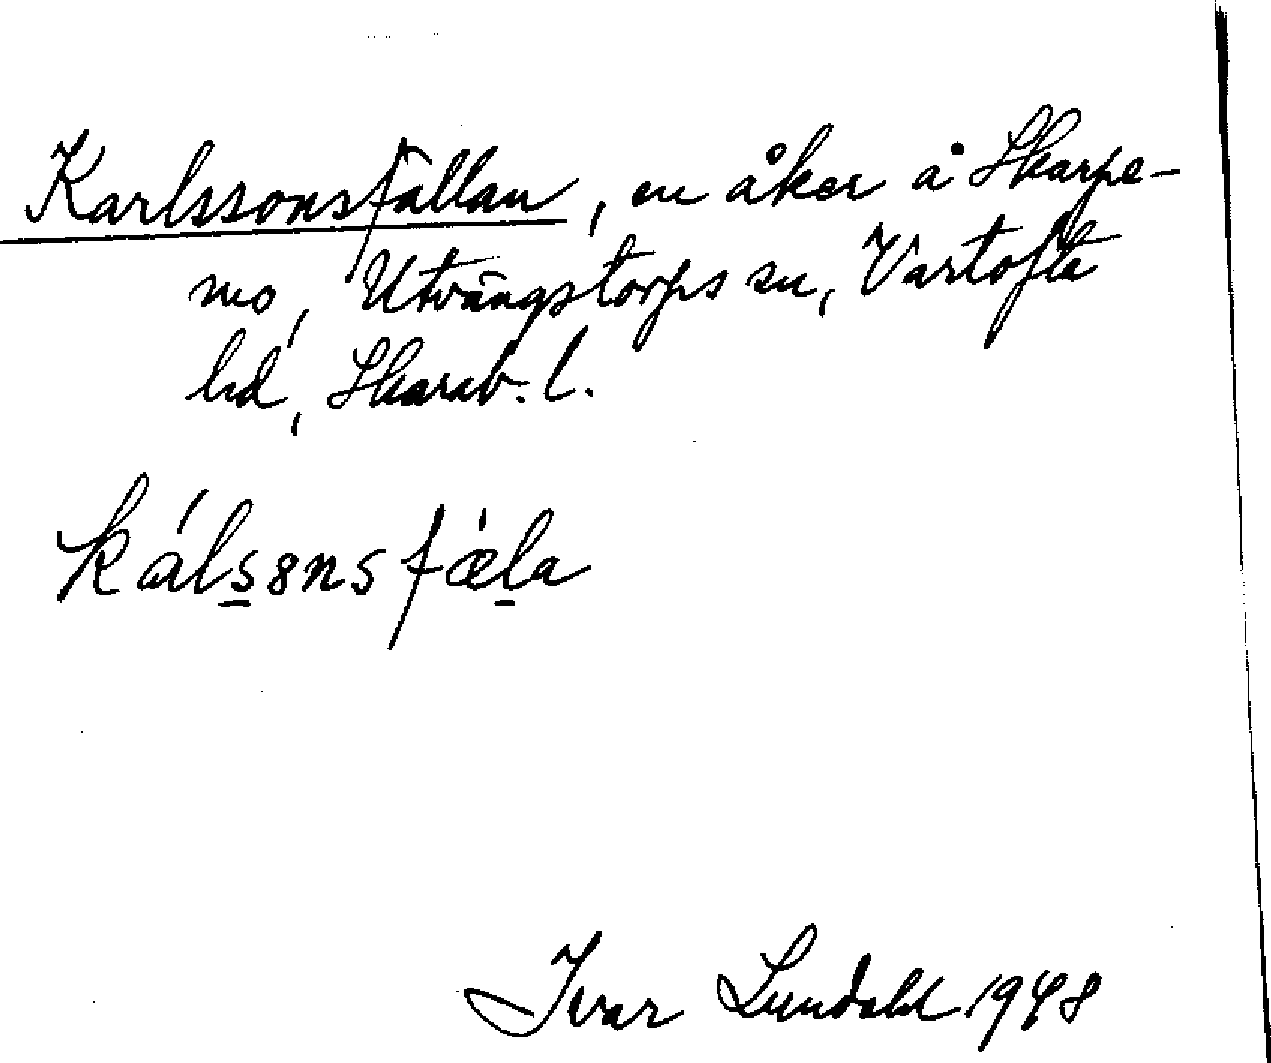 Karlssonsfällan, en åker å Skarpe-
mo, Utvängstorps sn, Vartofta
hd, Skarab. l.
kálsȣnsfǽla
Ivar Lundahl 1948